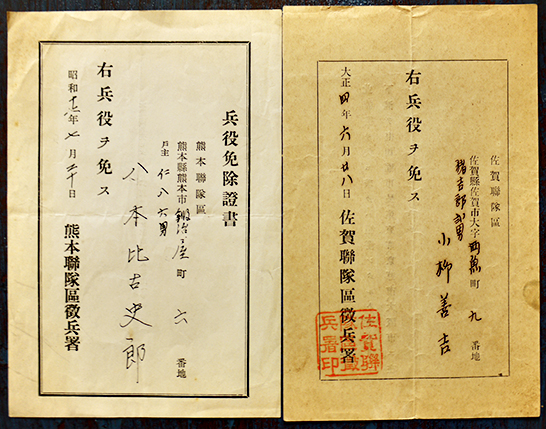 兵役免除證書
熊本聯隊區
熊本縣熊本市鍛冶屋町六番地
戸主仁八六男
八本比古史郎
右兵役ヲ免ス
昭和十七年七月三十日
熊本聯隊區徵兵署
佐賀聯隊區
佐賀縣佐賀市大字町九番地
男
小柳善吉
右兵役ヲ免ス
大正四年六月廿八日
佐賀聯隊區徵兵署
佐賀聯
兵署印